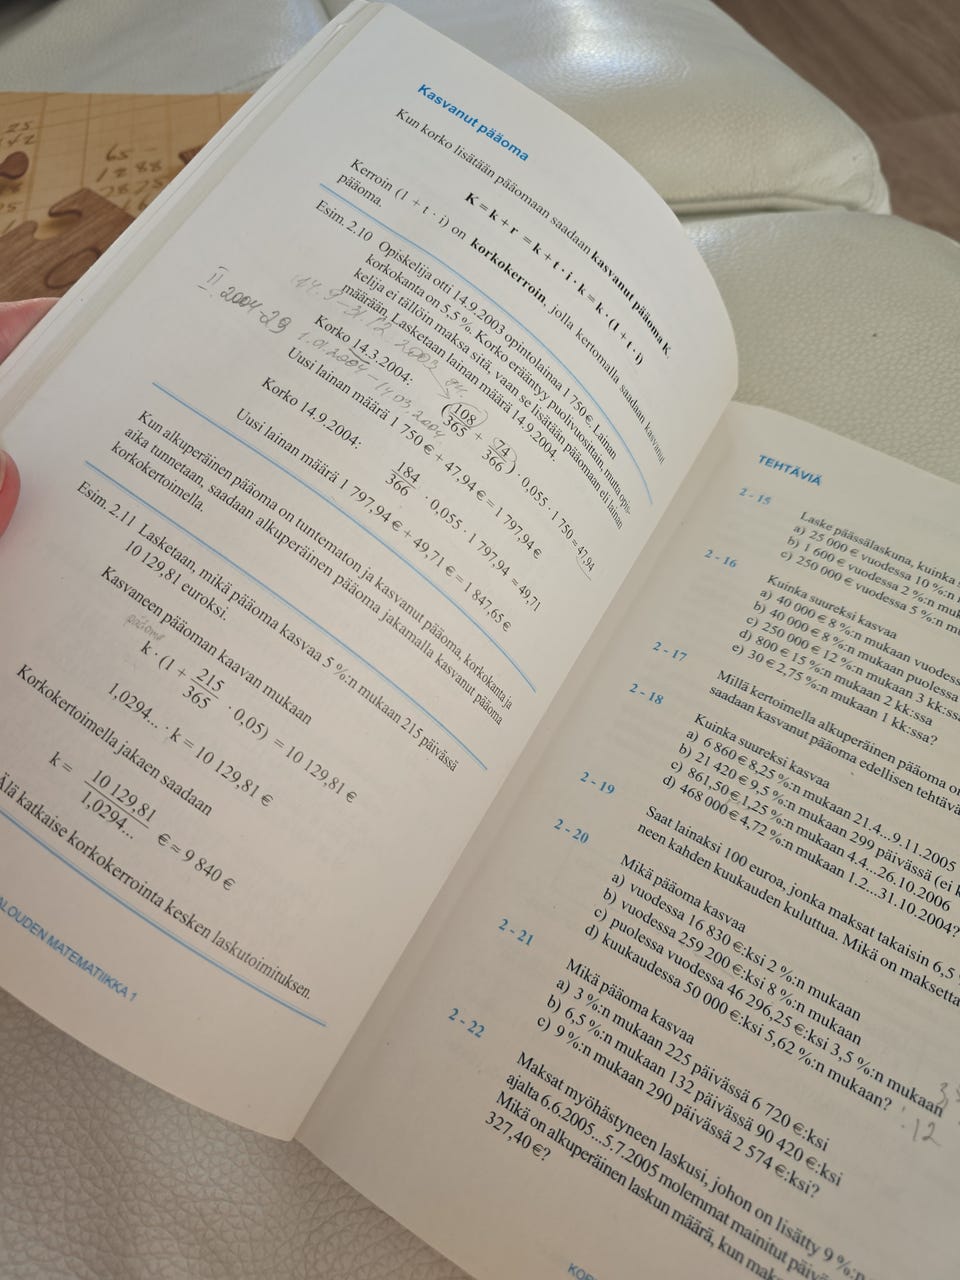 25
65
1288
2875
Kasvanut pääoma
Kun korko lisätään pääomaan saadaan kasvanut pääoma K
K = k + r = k + t · i · k = k · (1 + t · i)
Kerroin (1 + t · i) on korkokerroin, jolla kertomalla saadaan kasvanut
pääoma.
Esim. 2.10 Opiskelija otti 14.9.2003 opintolainaa 1 750 €. Lainan
korkokanta on 5,5 %. Korko erääntyy puolivuosittain, mutta opis-
kelija ei tällöin maksa sitä, vaan se lisätään pääomaan eli lainan
määrään. Lasketaan lainan määrä 14.9.2004.
14.9–31.12.2003
II 2004-29
1.01.2004–14.03.2004
Korko 14.3.2004:
(108/365 + 74/366) · 0,055 · 1 750 ≈ 47,94
Uusi lainan määrä 1 750 € + 47,94 € = 1 797,94 €
Korko 14.9.2004:
184/366 · 0,055 · 1 797,94 ≈ 49,71
Uusi lainan määrä 1 797,94 € + 49,71 € = 1 847,65 €
Kun alkuperäinen pääoma on tuntematon ja kasvanut pääoma, korkokanta ja
aika tunnetaan, saadaan alkuperäinen pääoma jakamalla kasvanut pääoma
korkokertoimella.
Esim. 2.11 Lasketaan, mikä pääoma kasvaa 5 %:n mukaan 215 päivässä
10 129,81 euroksi.
Kasvaneen pääoman kaavan mukaan
pääoma
k · (1 + 215/365 · 0,05) = 10 129,81 €
1,0294... · k = 10 129,81 €
Korkokertoimella jakaen saadaan
k = 10 129,81/1,0294... € ≈ 9 840 €
Älä katkaise korkokerrointa kesken laskutoimituksen.
MATEMATIIKKA 1
TEHTÄVIÄ
2 - 15
Laske päässälaskuna, kuinka
a) 25 000 € vuodessa 10 %:n
b) 1 600 € vuodessa 2 %:n
c) 250 000 € vuodessa 5 %:n
2 - 16
Kuinka suureksi kasvaa
a) 40 000 € 8 %:n mukaan
b) 40 000 € 8 %:n mukaan puolessa
c) 250 000 € 12 %:n mukaan 3
d) 800 € 15 %:n mukaan 2 kk:ssa
e) 30 € 2,75 %:n mukaan 1 kk:ssa?
2 - 17
Millä kertoimella alkuperäinen pääoma
saadaan kasvanut pääoma edellisen
2 - 18
Kuinka suureksi kasvaa
a) 6 860 € 8,25 %:n mukaan 21.4...9.11.2005
b) 21 420 € 9,5 %:n mukaan 299 päivässä (ei
c) 861,50 € 1,25 %:n mukaan 4.4...26.10.2006
d) 468 000 € 4,72 %:n mukaan 1.2...31.10.2004?
2 - 19
Saat lainaksi 100 euroa, jonka maksat takaisin 6,5
neen kahden kuukauden kuluttua. Mikä on
2 - 20
Mikä pääoma kasvaa
a) vuodessa 16 830 €:ksi 2 %:n mukaan
b) vuodessa 259 200 €:ksi 8 %:n mukaan
c) puolessa vuodessa 46 296,25 €:ksi 3,5 %:n mukaan
d) kuukaudessa 50 000 €:ksi 5,62 %:n mukaan?
:12
2 - 21
Mikä pääoma kasvaa
a) 3 %:n mukaan 225 päivässä 6 720 €:ksi
b) 6,5 %:n mukaan 132 päivässä 90 420 €:ksi
c) 9 %:n mukaan 290 päivässä 2 574 €:ksi?
2 - 22
Maksat myöhästyneen laskusi, johon on lisätty 9 %:n
ajalta 6.6.2005...5.7.2005 molemmat mainitut
Mikä on alkuperäinen laskun määrä, kun
327,40 €?